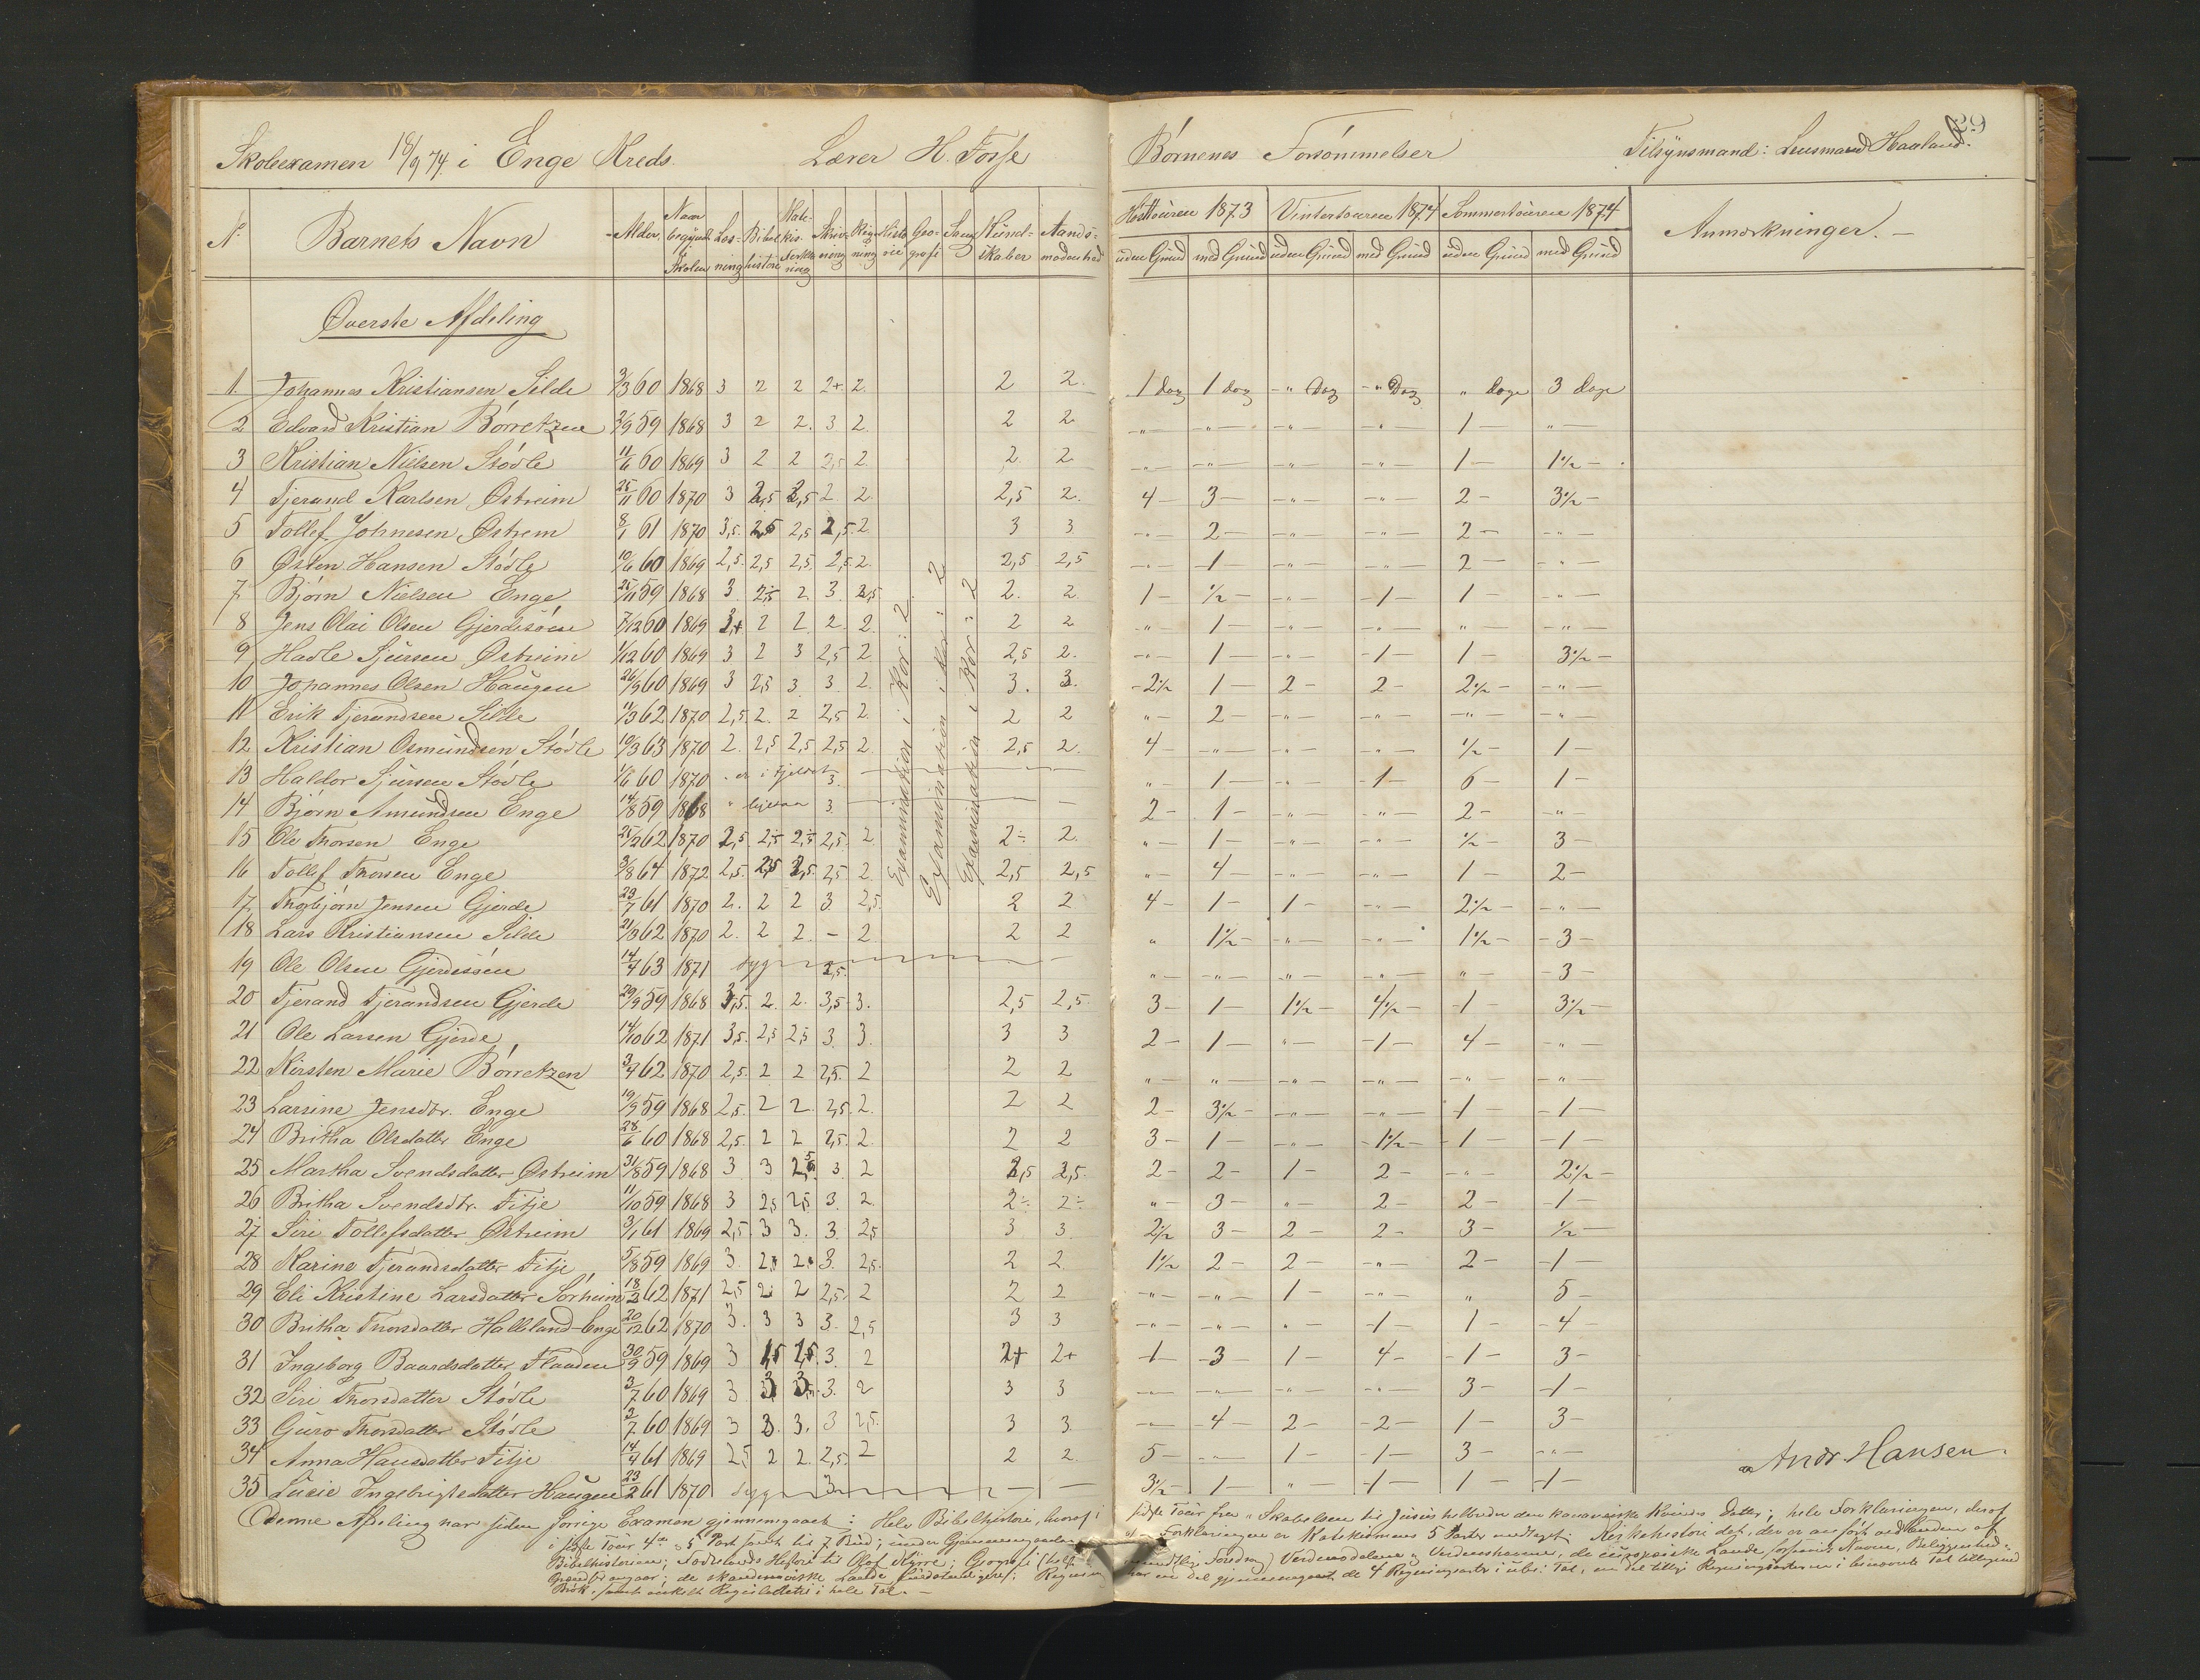 Skoleexamen 18/9 74. i Enge Kreds. Lærer H. Fosse
N. Barnets Navn Alder. Naar begyndt Skolen Læsning Bibelhistorie Katekis. Forklaring Skrivning Regning Historie Geografi Sang Kundskaber Aandsmodenhed
Øverste Afdeling
1. Johannes Kristiansen Silde 3/3 60 1868 3 2 2 2+ 2. 2 2.
2 Edvard Kristian Børretzen 2/9 59 1868 3 2 2. 3 2. 2 2
3 Kristian Nielsen Stødle 11/6 60 1869 3 2 2 2,5 2. 2. 2
4 Tjerand Karlsen Østreim 25/11 60 1870 3 2,5 2,5 2. 2. 2,5 2.
5 Tollef Johnesen Østrem 8/1 61 1870 3,5. 2,5 2,5 2,5. 2. 3 3
6 Østen Hansen Stødle 10/6 60 1869 2,5. 2,5 2,5. 2,5. 2. 2,5 2,5
7 Bjørn Nielsen Enge 25/11 59 1868 3. 2÷ 2 3. 2,5 2. 2.
8 Jens Olai Olsen Gjerdesøen 7/12 60 1869 2+ 2 2 2. 2. 2 2
9 Hadle Sjursen Østreim 1/12 60 1869 3 2 3 2,5 2. 2,5 2.
10 Johannes Olsen Haugen 26/9 60 1869 3 2,5 3. 3. 2. 3. 3.
11 Erik Tjerandsen Silde 11/3 62 1870 2,5 2. 2 2,5 2. 2 2
12 Kristian Osmundsen Stødle 10/3 63 1870 2. 2,5 2,5 2,5 2. 2,5 2.
13 Haldor Sjursen Stødle 1/6 60 1870 er i Fjeldet 3.
14 Bjørn Amundsen Enge 14/8 59 1868 " ligesaa 3.
15 Ole Thorsen Enge 25/2 62 1870 2,5 2÷ 2÷ 2,5 2 2÷ 2.
16 Tollef Thorsen Enge 3/8 64 1872 2,5. 2,5 2,5. 2,5 2. 2,5 2,5
17 Thorbjørn Jensen Gjerde 23/7 61 1870 2. 2 2 3. 2,5. 2 2
18 Lars Kristiansen Silde 21/3 62 1870 2. 2 2. – 2. 2 2
19 Ole Olsen Gjerdesøen 14/4 63 1871 syg 2,5.
20 Tjerand Tjerandsen Gjerde 29/9 59 1868 3,5. 2. 2. 3,5 3. 2,5 2,5.
21 Ole Larsen Gjerde 14/10 62 1871 3,5. 2,5 2,5 3. 3. 3 3
22 Kirsten Marie Børretzen 3/4 62 1870 2,5. 2 2 2,5. 2 2 2
23 Larsine Jensdtr. Enge 19/9 59 1868 2,5. 2 2. 2,5. 2. 2 2
24 Britha Olsdatter Enge 28/6 60 1868 2,5. 2 2 2,5. 2. 2 2
25 Martha Svendsdatter Østreim 31/8 59 1868 3 3 2,5 3. 2 2,5 2,5.
26 Britha Svendsdtr. Fitje 11/10 59 1868 3 2,5 2,5. 3. 2. 2÷ 2÷
27 Siri Tollefsdatter Østreim 3/1 61 1869 2,5. 3 3. 3. 2,5 3 3.
28 Karine Tjerandsdatter Fitje 5/8 59 1869 3. 2 2 3. 2,5. 2 2.
29 Eli Kristine Larsdatter Sørheim 18/2 62 1871 2,5 2 2 2,5. 2 2 2
30 Britha Thorsdatter Halleland-Enge 20/12 62 1870 3. 3 3 3. 2,5 3 3
31 Ingeborg Baardsdatter Flaaden 30/9 59 1869 3 2,5 2,5. 3. 2 2+ 2+
32 Siri Thorsdatter Stødle 3/7 60 1869 3 3 3. 3. 2 3 3
33 Guro Thorsdatter Stødle 3/7 60 1869 3 3. 3. 3 2,5. 3 3.
34 Anna Hansdatter Fitje 14/4 61 1869 2,5 2 2. 2,5. 2 2 2.
35 Lucie Ingebrigtsdatter Haugen 23/2 61 1870 syg 3
Examination i Kor: 2
Examination i Kor: 2
Examination i Kor: 2
Denne Afdeling har siden forrige Examen gjennemgaaet: Hele Bibelhistorie, hvoraf i
i sidste Tour 4de og 5 Part samt til 7 Bud; under Gjennemgaaelsen
Bibelhistorien; Fædrelands Historie til Olaf Kyrre; Geografi
de skandinaviske Lande
Bok. samt enkelt Reguladetri i hele Tal. –
Børnenes Forsømmelser Tilsynsmand: Lensmand Haaland.
Høsttouren 1873 Vintertouren 1874 Sommertouren 1874 Anmærkninger. –
uden Grund med Grund uden Grund med Grund uden Grund med Grund
1 dag 1 dag – " Dag – " Dag " dage 3 dage
– " – – " – – " – – " – 1 – " –
– " – – " – – " – – " – 1 – 1½ – .
4 – 3 – – " – – " – 2 – 3½ –
– " – 2 – – " – – " – 2 – – " –
– " – 1 – – " – – " – 2 – – " –
1 – ½ – – " – – 1 – 1 – – " –
" – 1 – – " – – " – " – – " –
– " – 1 – – " – – 1 – 1 – 3½ –
– 2½ 1 – 2 – 2 – 2½ – – " –
" – 2 – – " – – " – – " – – " –
4 – – " – – " – – " – ½ – 1 –
" – 1 – – " – – 1 – 6 – 1 –
2 – 1 – – " – – " – 2 – – " –
" – 1 – – " – – " – ½ – 3 –
" – 4 – – " – – " – 1 – 2 –
4 – 1 – 1 – – " – 2½ – – " –
" 1½ – – " – – " – 1½ – – 3 –
" – – " – – " – – " – " – – 3 –
3 – 1 – 1½ – 4½ – – 1 – 3½ –
2 – 1 – " – – 1 – 4 – – " –
" – " – – " – – " – – " – – " –
2 – 3½ – – " – – " – – 1 – – 1 –
3 – 1 – – " – – 1½ – – 1 – – 1 –
2 – 2 – 1 – 2 – – " – 2½ –
" – 3 – " – 2 – 2 – – 1 –
2½ 3 – 2 – 2 – 3 – ½ –
1½ 2 – 2 – – " – 2 – – 1 –
– " – – " – 1 – – " – " 5 –
– " – – " – " – – 1 – 1 – – 4 –
– 1 – 3 – 1 – 4 – – 1 – 3 –
– " – – " – – " – – " – 3 – – 1 –
– " – – 4 – 2 – – 2 – 1 – 3 –
5 – – " – 1 – – 1 – 3 – – " –
3½ – 1 – " – – 1 – 1 – – 1 –
Andr. Hansen.
sidste Tour fra "Skabelsen til Jesus helbreder den kananæiske Kvindes Datter; hele Forklaringen, deraf
af Forklaringen er Katekismens 5 Parter medtaget; Kirkehistorie det, der er anført ved Enden af
mundtlig Foredrag) Verdensdelene og Verdenshavene, de europæiske Lande Navne, Beliggenhed
har en Del gjennemgaaet de 4 Regningsarter i ube: Tal, en Del tillige Regningsarterne i benævnte Tal tilligemed